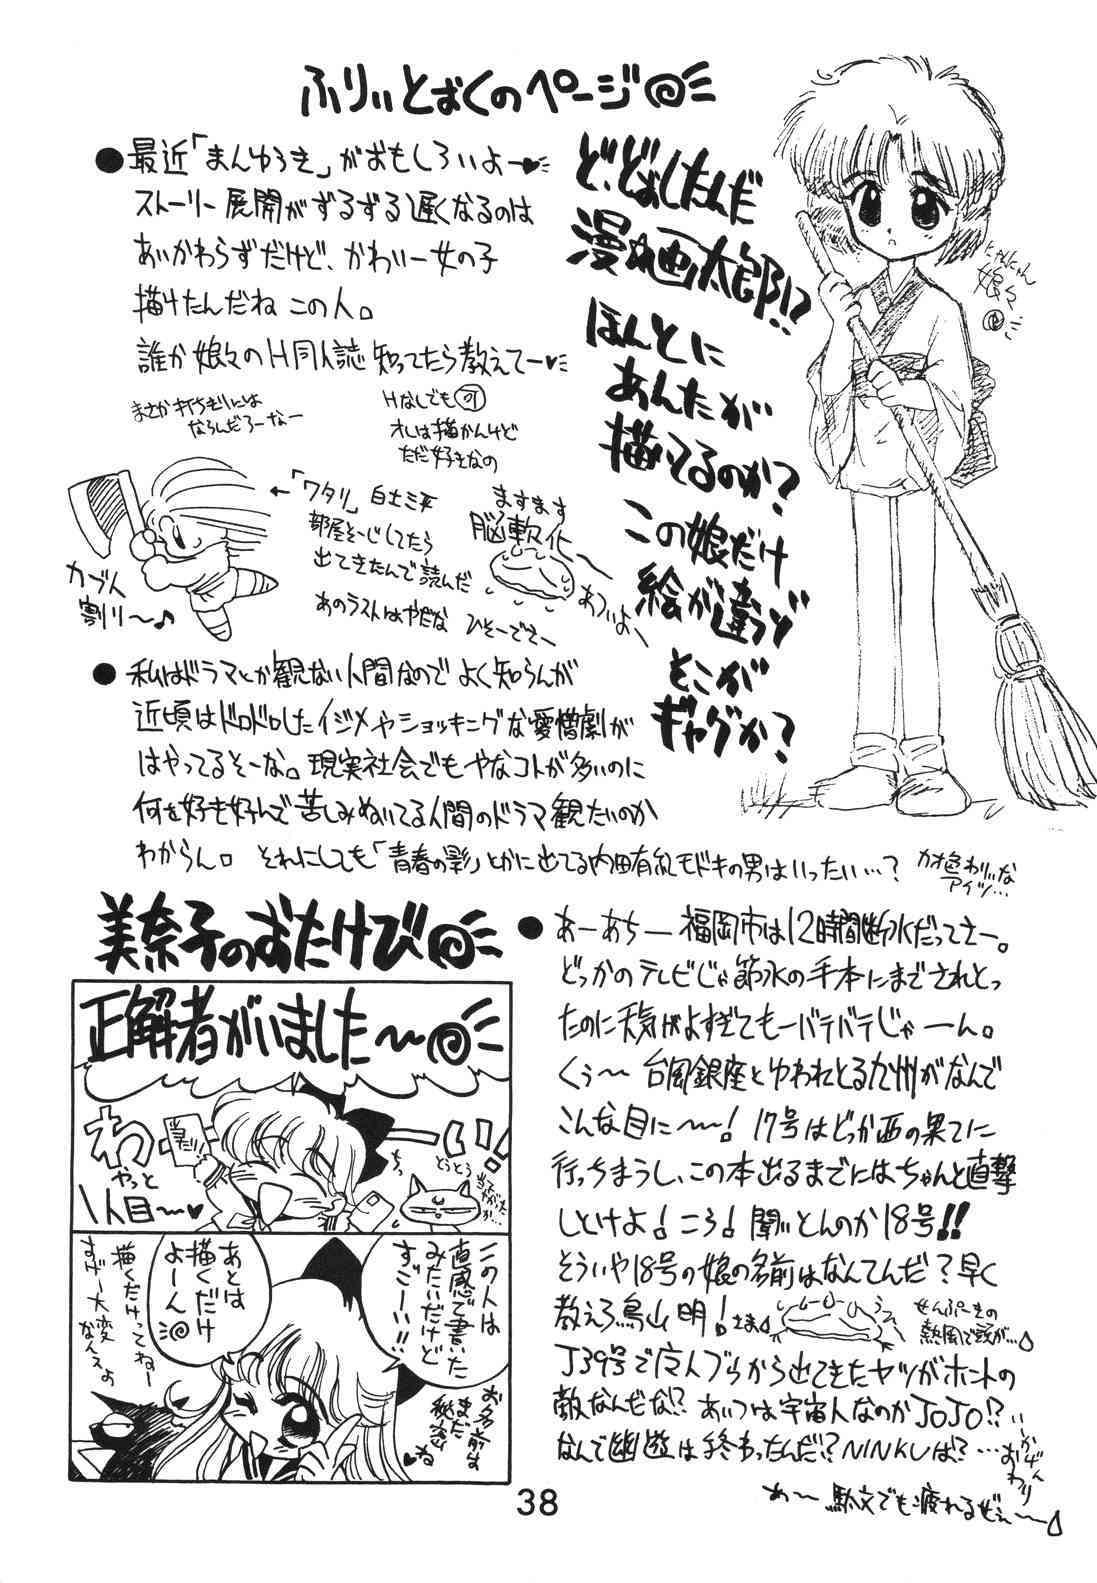 ふりぃとぉくのページ
●最近「まんゆうき」がおもしろいよー
ストーリー展開がずるずる遅くなるのは
あいかわらずだけど、かわいー女の子
描けたんだね この人。
誰か娘々のH同人誌 知ってたら教えてー
まさか打ちぎりには
ならんだろーなー
Hなしでも可
オレは描かんけど
ただ好きなの
ど、どぉしたんだ
漫☆画太郎!?
ほんとに
あんたが
描いてるのか?
この娘だけ
絵が違うぞ
そこが
ギャグか?
にゃんにゃん
娘々
←「ワタリ」白土三平
部屋そーじしてたら
出てきたんで読んだ
あのラストはやだな ひそーでさー
ますます
脳軟化
あついよ
カブト
割り〜♪
●私はドラマとか観ない人間なのでよく知らんが
近頃はドロドロしたイジメやショッキングな愛憎劇が
はやってるそーな。現実社会でもやなコトが多いのに
何を好き好んで苦しみぬいてる人間のドラマ観たいのか
わからん。それにしても「青春の影」とかに出てる内田有紀モドキの男はいったい…?
カオ色わりぃな
アイツ…
美奈子のおたけび
正解者がいました〜
わーい!
やっと
1人目〜♥
当たり
とうとう
この人は
直感で書いた
みたいだけど
すごーい!!
お名前は
まだ
秘密
ね
あとは
描くだけ
よーん
描くだけってねー
すげー大変
なんスよ
●あーあちー 福岡市は12時間断水だってさー。
どっかのテレビじゃ節水の手本にまでされとっ
たのに天気がよすぎてもーバテバテじゃーん。
くぅ〜 台風銀座とゆわれとる九州がなんで
こんな目に〜!17号はどっか西の果てに
行っちまうし、この本出るまでにはちゃんと直撃
しといけよ!ころ!聞いとんのか18号!!
そういや18号の娘の名前はなんてんだ?早く
教えろ鳥山明!さま
せんぷーきの
熱風で頭が…
J39号で床人ブウから出てきたヤツがホントの
敵なんだな!?あいつは宇宙人なのかJOJO!?
なんで幽遊は終わったんだ!?NINKUは?…
かぜん
おわり
あ〜駄文でも疲れるぜぇ〜
38